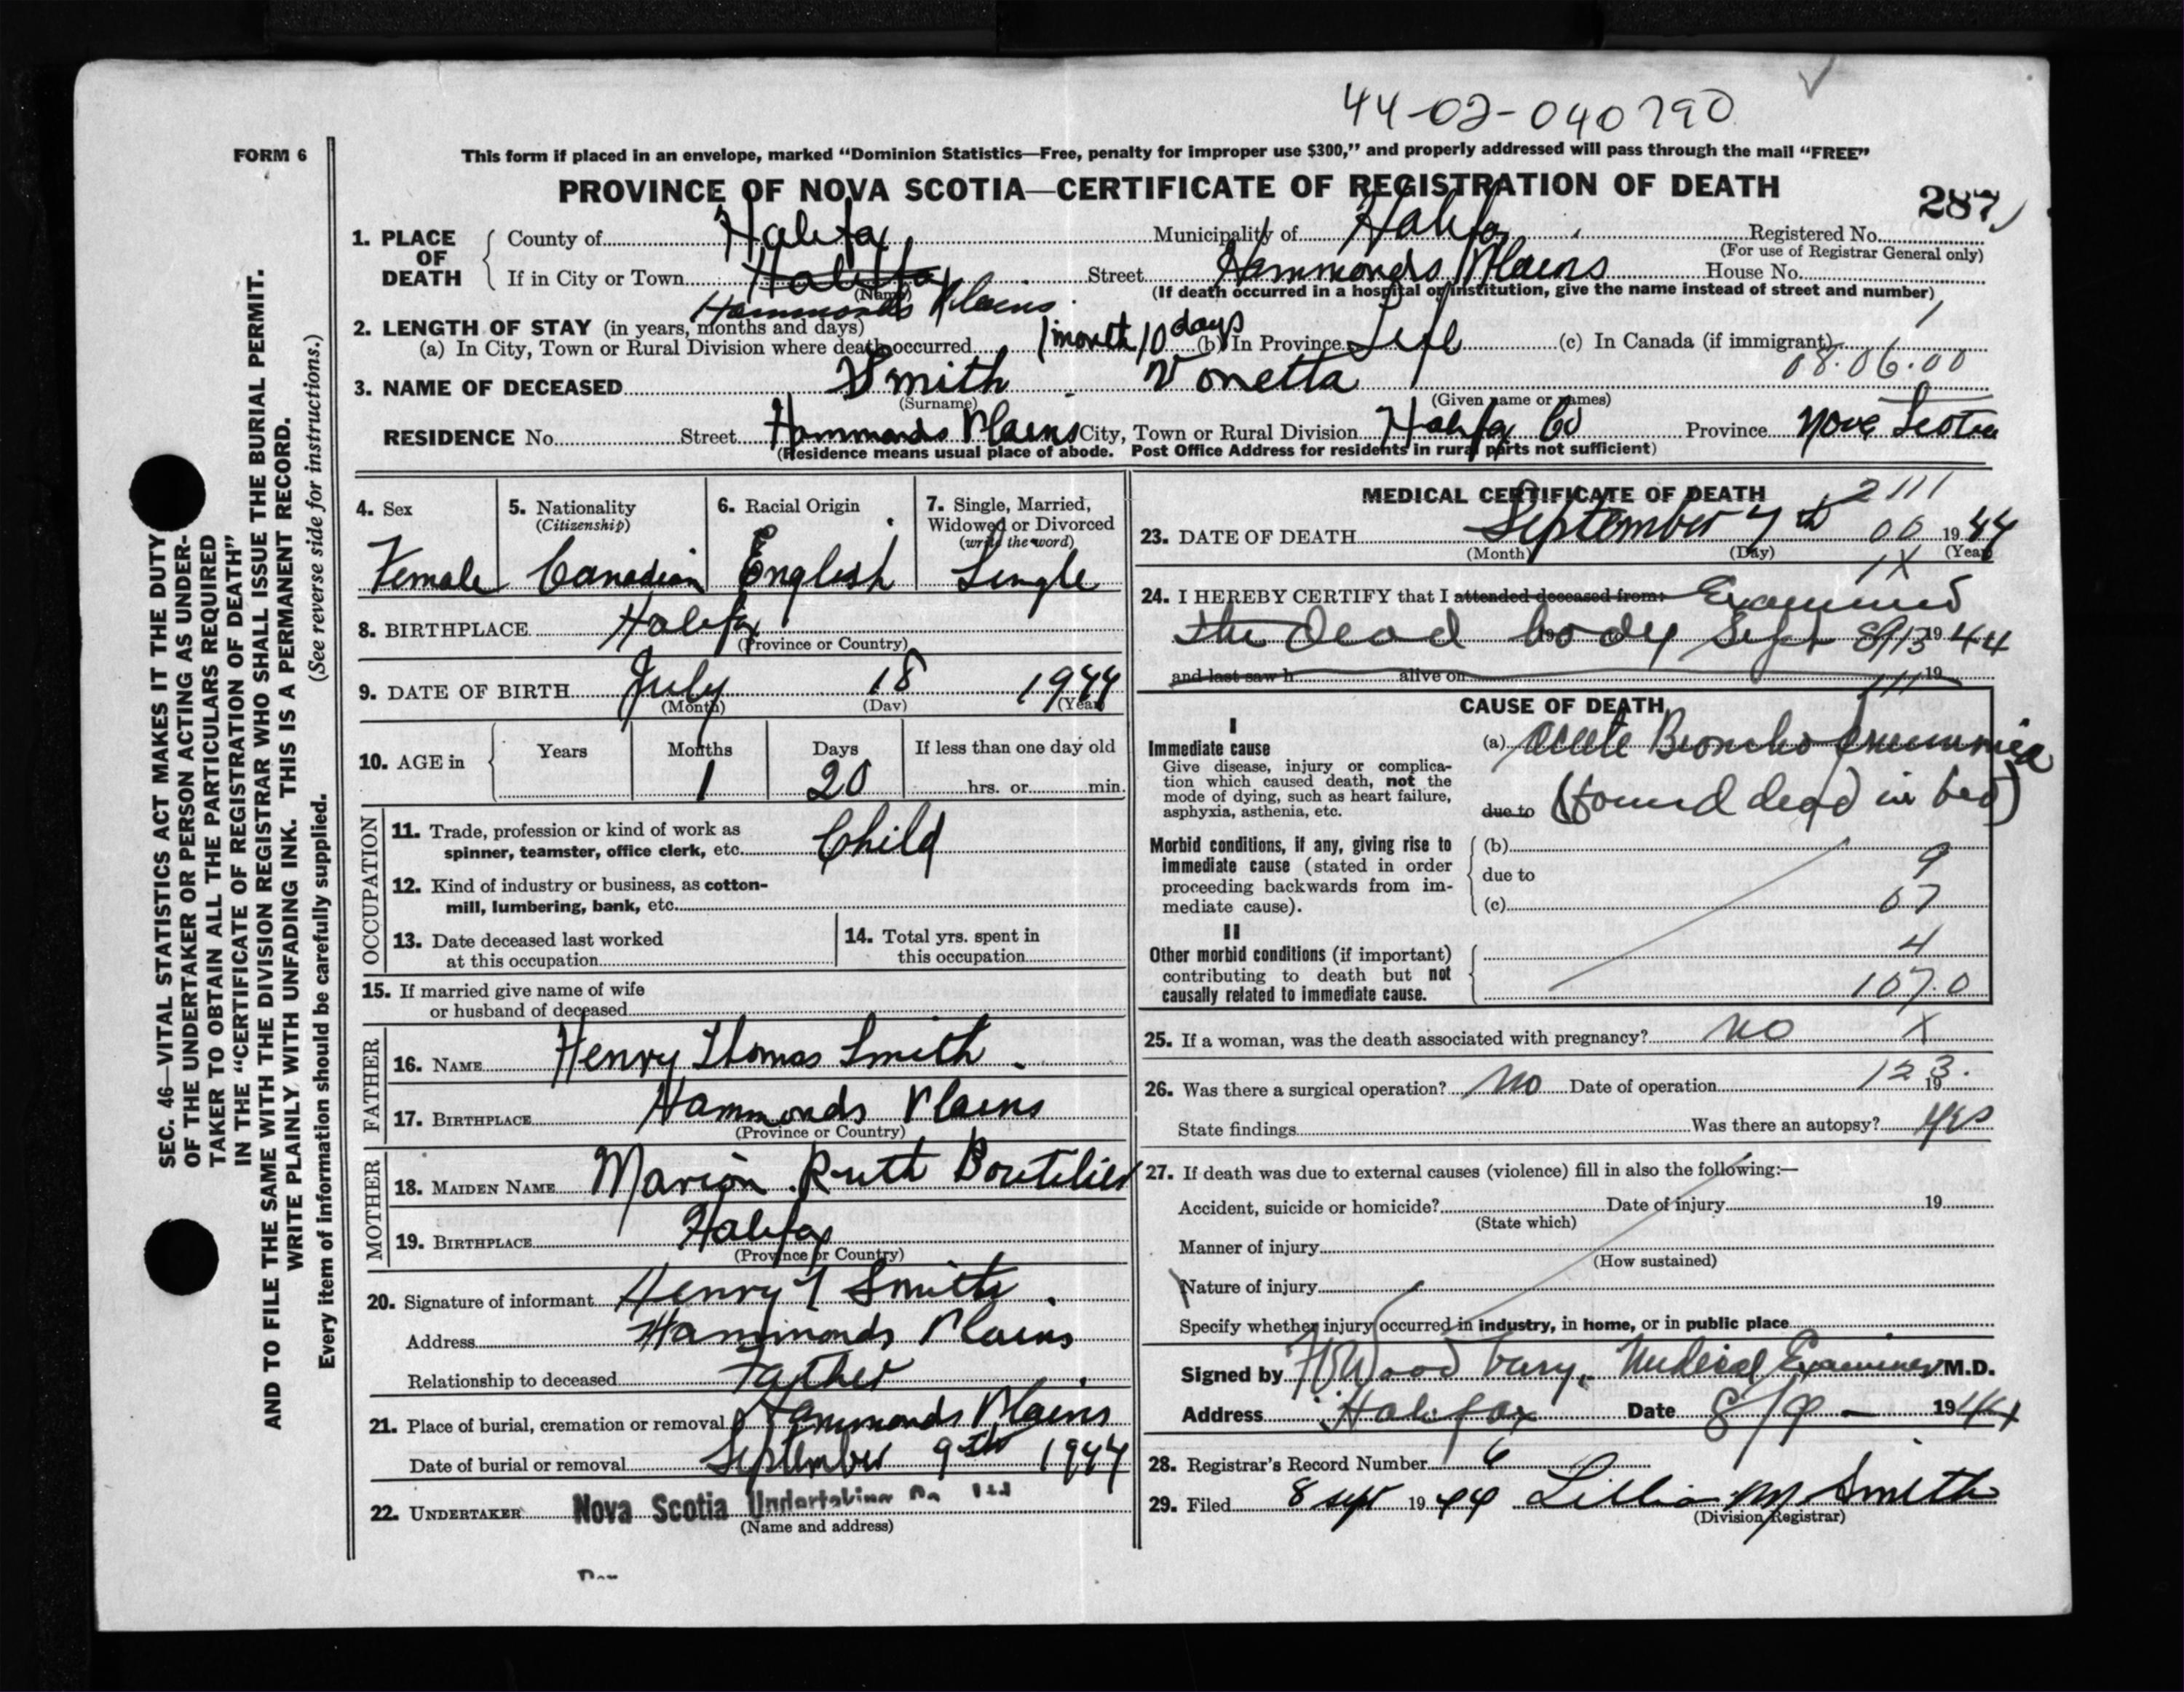 44-02-040790
FORM 6
This form if placed in an envelope, marked "Dominion Statistics—Free, penalty for improper use $300," and properly addressed will pass through the mail "FREE"
PROVINCE OF NOVA SCOTIA—CERTIFICATE OF REGISTRATION OF DEATH
287
1. PLACE OF DEATH
County of Halifax Municipality of Halifax Registered No.
(For use of Registrar General only)
If in City or Town Halifax Street Hammonds Plains House No.
(Name) (If death occurred in a hospital or institution, give the name instead of street and number)
Hammonds Plains
2. LENGTH OF STAY (in years, months and days)
(a) In City, Town or Rural Division where death occurred 1 month 10 days (b) In Province Life (c) In Canada (if immigrant)
1
08.06.00
3. NAME OF DECEASED Smith Vonetta
(Surname) (Given name or names)
RESIDENCE No. Street Hammonds Plains City, Town or Rural Division Halifax Co Province Nova Scotia
(Residence means usual place of abode. Post Office Address for residents in rural parts not sufficient)
4. Sex
Female
5. Nationality
(Citizenship)
Canadian
6. Racial Origin
English
7. Single, Married,
Widowed or Divorced
(write the word)
Single
8. BIRTHPLACE Halifax
(Province or Country)
9. DATE OF BIRTH July 18 1944
(Month) (Day) (Year)
10. AGE in
Years Months Days If less than one day old
1 20 hrs. or min.
OCCUPATION
11. Trade, profession or kind of work as
spinner, teamster, office clerk, etc. Child
12. Kind of industry or business, as cotton-
mill, lumbering, bank, etc.
13. Date deceased last worked
at this occupation
14. Total yrs. spent in
this occupation
15. If married give name of wife
or husband of deceased
FATHER
16. NAME Henry Thomas Smith
17. BIRTHPLACE Hammonds Plains
(Province or Country)
MOTHER
18. MAIDEN NAME Marion Ruth Boutilier
19. BIRTHPLACE Halifax
(Province or Country)
20. Signature of informant Henry T Smith
Address Hammonds Plains
Relationship to deceased Father
21. Place of burial, cremation or removal Hammonds Plains
Date of burial or removal September 9th 1944
22. UNDERTAKER Nova Scotia Undertaking Co Ltd
(Name and address)
MEDICAL CERTIFICATE OF DEATH
2111
23. DATE OF DEATH September 7th 00 1944
(Month) (Day) (Year)
1X
24. I HEREBY CERTIFY that I attended deceased from: Examined
the dead body Sept 8/13 1944
and last saw h alive on 19
111
CAUSE OF DEATH
I
Immediate cause
Give disease, injury or complica-
tion which caused death, not the
mode of dying, such as heart failure,
asphyxia, asthenia, etc.
(a) Acute Broncho pneumonia
due to (found dead in bed)
Morbid conditions, if any, giving rise to
immediate cause (stated in order
proceeding backwards from im-
mediate cause).
(b)
9
due to
(c) 07
II
Other morbid conditions (if important)
contributing to death but not
causally related to immediate cause.
4
107.0
25. If a woman, was the death associated with pregnancy? No X
26. Was there a surgical operation? No Date of operation 19
123.
State findings Was there an autopsy? yes
27. If death was due to external causes (violence) fill in also the following:—
Accident, suicide or homicide? Date of injury 19
(State which)
Manner of injury
(How sustained)
Nature of injury
Specify whether injury occurred in industry, in home, or in public place
Signed by Woodbury, Medical Examiner M.D.
Address Halifax Date 8/9 — 1944
28. Registrar's Record Number 6
29. Filed 8 Sept 1944 Lillia M Smith
(Division Registrar)
SEC. 46—VITAL STATISTICS ACT MAKES IT THE DUTY
OF THE UNDERTAKER OR PERSON ACTING AS UNDER-
TAKER TO OBTAIN ALL THE PARTICULARS REQUIRED
IN THE "CERTIFICATE OF REGISTRATION OF DEATH"
AND TO FILE THE SAME WITH THE DIVISION REGISTRAR WHO SHALL ISSUE THE BURIAL PERMIT.
WRITE PLAINLY WITH UNFADING INK. THIS IS A PERMANENT RECORD.
Every item of information should be carefully supplied. (See reverse side for instructions.)